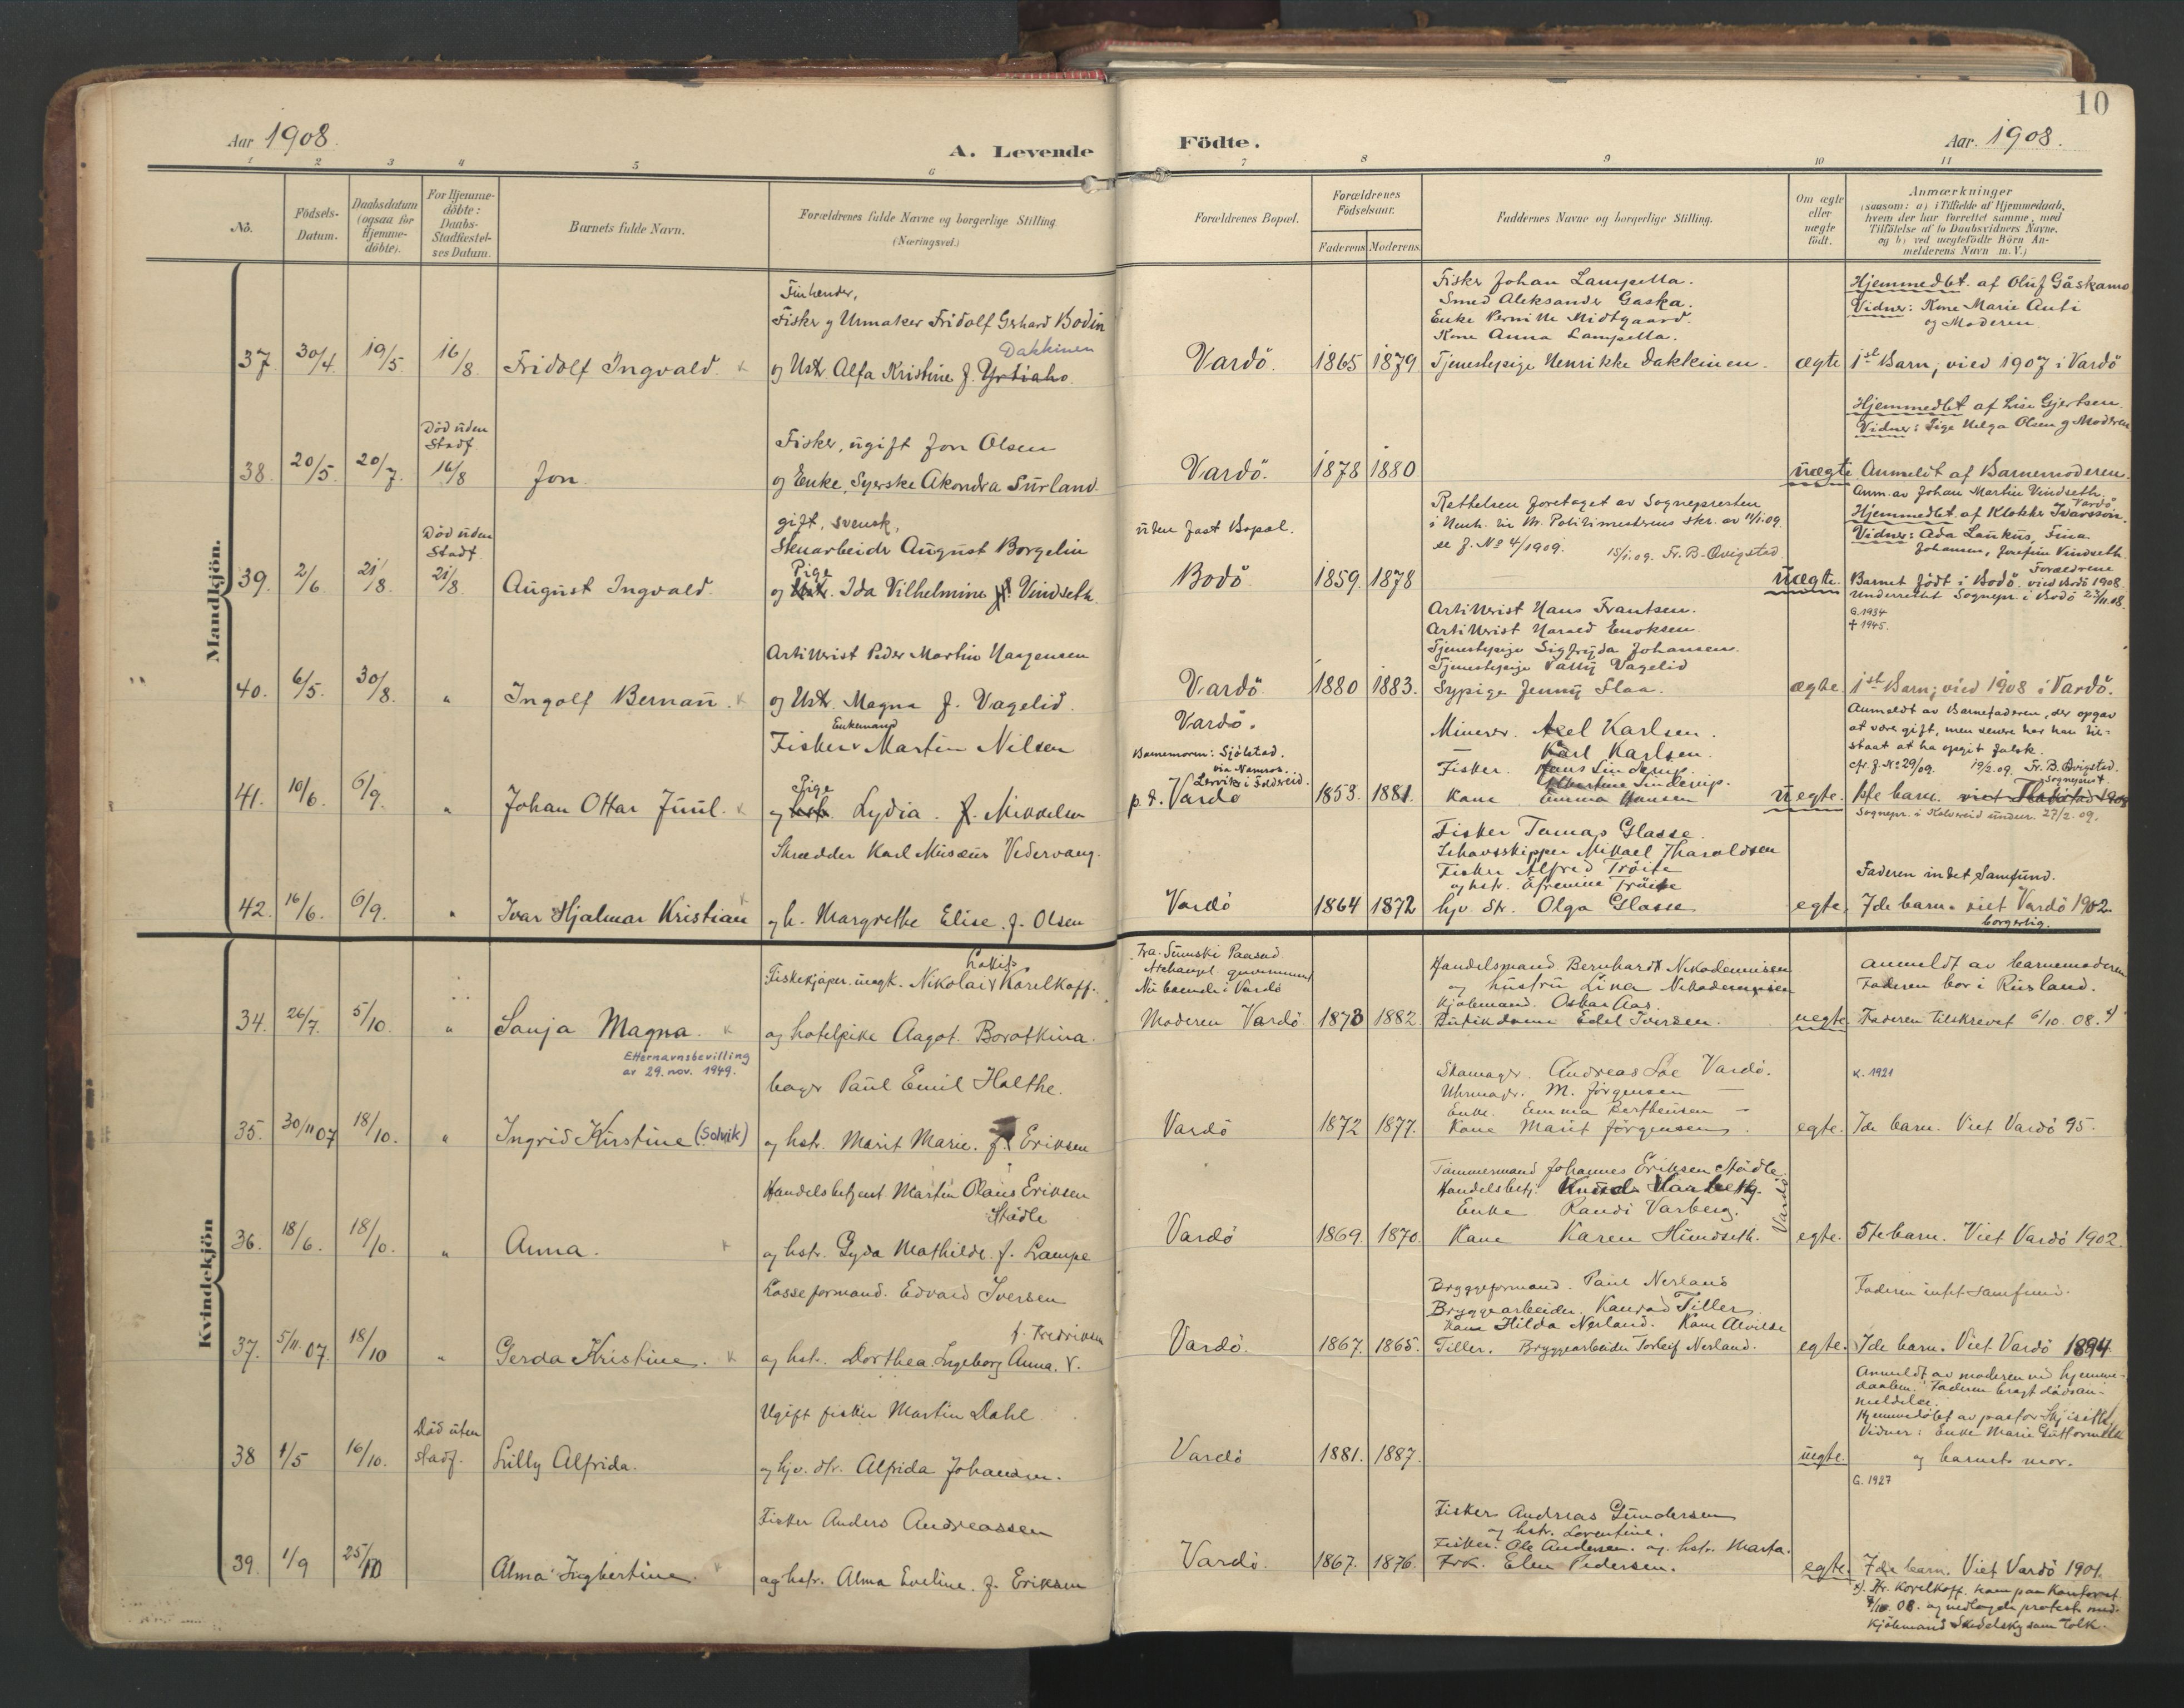 10
Aar 1908.
A. Levende
Födte.
Aar. 1908.
1 2 3 4 5 6 7 8 9 10 11
No.
Födsels-Datum.
Daabsdatum (ogsaa for Hjemme-döbte).
For Hjemme-döbte: Daabs-Stadfæstel-ses Datum.
Barnets fulde Navn.
Forældrenes fulde Navne og borgerlige Stilling. (Næringsvei.)
Forældrenes Bopæl.
Forældrenes Födselsaar.
Faderens. Moderens.
Faddernes Navne og borgerlige Stilling.
Om ægte eller uægte födt.
Anmærkninger
(saasom: a) i Tilfælde af Hjemmedaab,
hvem der har forrettet samme, med
Tilföielse af to Daabsvidners Navne.
og b) ved uægtefödte Börn An-
melderens Navn m.V.)
Mandkjön.
37 30/4. 19/5. 16/8. Fridolf Ingvald.
Finlænder,
Fisker og Urmaker Fridolf Gerhard Bodin
Dakkinen
og Ustr. Alfa Kristine f. Yrtiaho.
Vardö. 1865 1879
Fisker Johan Lampella.
Smed Aleksander Gaska.
Enke Pernille Midtgaard.
Kone Anna Lampella.
Tjenestepige Henrikke Dakkinen.
ægte
Hjemmedbt. af Oluf Gåskamo
Vidner: Kone Marie Anti
og Moderen.
1st Barn; vied 1907 i Vardö
38. 20/5. 20/7. Död uden Stadf 16/8 Jon
Fisker, ugift Jon Olsen
og Enke, Syerske Akondra Surland.
Vardö. 1878 1880
uægte
Hjemmedbt af Lise Gjertsen.
Vidner: Pige Helga Olsen og Moderen
Anmeldt af Barnemoderen.
39. 2/6 21/8. Död uden Stadf 21/8. August Ingvald.
gift, svensk,
Stenarbeider August Borgelin
Pige
og Ustr. Ida Vilhelmine f. Vindseth.
uden fast Bopæl.
Bodö 1859. 1878
Rettelsen foretaget av Sognepresten
i Henh. til M. Politimesterens skr. av 11/1.09.
se J. No 4/1909. 15/1.09. Fr. B. Qvigstad
uægte.
Anm. av Johan Martin Vindseth, Vardö
Hjemmedbt. af Klokker Ivarsson.
Vidner: Ada Laukus, Fina
Johansen, Josefine Vindseth
Forældrene
Barnet födt i Bodö. vied Bodö 1908.
Underrettet Sognepr. i Bodö 23/11.08.
G. 1934
† 1945.
40. 6/5. 30/8. " Ingolf Bernau.
Artillerist Peder Martin Haagensen
og Ustr. Magna f. Vagelid.
Vardö 1880 1883.
Artillerist Hans Frantsen.
Artillerist Harald Enoksen.
Tjenestepige Sigfryda Johansen.
Tjenestepige Vally Vagelid
Sypige Jenny Flaa.
ægte.
1st Barn; vied 1908 i Vardö.
41. 10/6. 6/9. " Johan Ottar Juul.
Enkemand
Fisker Martin Nilsen
Pige
og hstr. Lydia. f. Mikkelsen
Vardö.
Barnemoren: Sjölstad.
via Namsos.
Lervik i Foldereid.
p.t. Vardö 1853. 1881.
Minerer. Axel Karlsen.
— Karl Karlsen.
Fisker. Hans Linderup.
Albertine Linderup.
Kone Emma Hansen
uegte.
Anmeldt av Barnefaderen, der opgav
at være gift, men senere har han til-
staat at ha opgit falsk.
cfr. J. No 29/09. 19/2.09. Fr. B. Qvigstad. Sogneprest.
1ste barn.
Sognepr. i Kolvereid underr. 27/2.09.
42. 16/6. 6/9. " Ivar Hjalmar Kristian
Skrædder Karl Musæus Vedervang.
og h. Margrethe Elise. f. Olsen
Vardö 1864 1872
Fisker Tomas Glasse.
Ishavsskipper Mikael Tharaldsen
Fisker Alfred Tröite
og hstr. Efremine Tröite
hjv. dtr. Olga Glasse
egte.
Faderen indet Samfund.
7de barn. viet Vardö 1902.
borgerlig.
Kvindekjön
34. 26/7. 5/10. " Sanja Magna.
Etternavnsbevilling
av 29. nov. 1949.
Fiskekjøper. ungk. Nikolai Karelkoff.
og hotelpike Aagot. Borotkina.
Fra Sumski Paasad.
Archangel. guvernement
Nu boende i Vardö
Moderen Vardö 1873 1882.
Handelsmand Bernhardt Nikodemissen
og hustru Lina Nikodemissen
Kjøbmand. Oskar Aas.
Butikdame Edel Iversen.
uegte.
Anmeldt av barnemoderen
Faderen bor i Rusland.
Faderen tilskrevet 6/10. 08. x)
35. 30/11 07 18/10. " Ingrid Kirstine (Solvik)
bager Paul Emil Holthe.
og hstr. Marit Marie. f. Eriksen
Vardö 1872 1877.
Skomager. Andreas Loe Vardö.
Uhrmagr. M. Jörgensen —
Enke. Emma Berthensen —
Kone Marit Jörgensen.
egte.
K. 1921
7de barn. Viet Vardö 95.
36. 18/6. 18/10. " Anna.
Handelsbetjent Martin Olaus Eriksen
Städle
og hstr. Gyda Mathilde. f. Lampe
Vardö 1869. 1870.
Tømmermand Johannes Eriksen Städle.
Handelsbetj. Knud Varberg.
Enke Randi Varberg.
Kone Karen Hundseth.
Vardö
egte.
5te barn. Viet Vardö 1902.
37. 5/11. 07. 18/10 " Gerda Kristine.
Losseformand. Edvard Iversen
f. Fredriksen
og hst. Dorthea Ingeborg Anna.
Vardö. 1867. 1865.
Bryggeformand. Paul Nerland
Bryggearbeider. Konrad Tiller.
Kone Hilda Nerland. Kone Alvilde
Tiller. Bryggearbeider Torleif Nerland.
egte.
Faderen intet samfund.
7de barn. Viet Vardö 1894.
38 1/5 16/10. Död uten stadf. Lilly Alfrida.
Ugift fisker Martin Dahl
og hjv. dtr. Alfrida Johansen.
Vardö 1881. 1887.
uegte.
Anmeldt av moderen ved hjemme-
daaben. Faderen bragt dödsan-
meldelse.
Hjemmedöbt av pastor Skjiseth,
Vidner: Enke Marie Guttormsen
og barnets mor.
G. 1927
39. 1/9 25/10 Alma Ingbertine.
Fisker Anders Andreassen
og hstr. Alma Eveline. f. Eriksen
Vardö. 1867. 1876.
Fisker Andreas Gundersen
og hstr. Lorentine.
Fisker. Ole Andersen. og hstr. Marta.
Frk. Elen Pedersen.
egte.
7de barn. Viet Vardö 1901.
x). Hr. Korelkoff. kom paa Kontoret
8/10. 08. og nedlagde protest med
Kjöbmand Skedelsky som tolk.